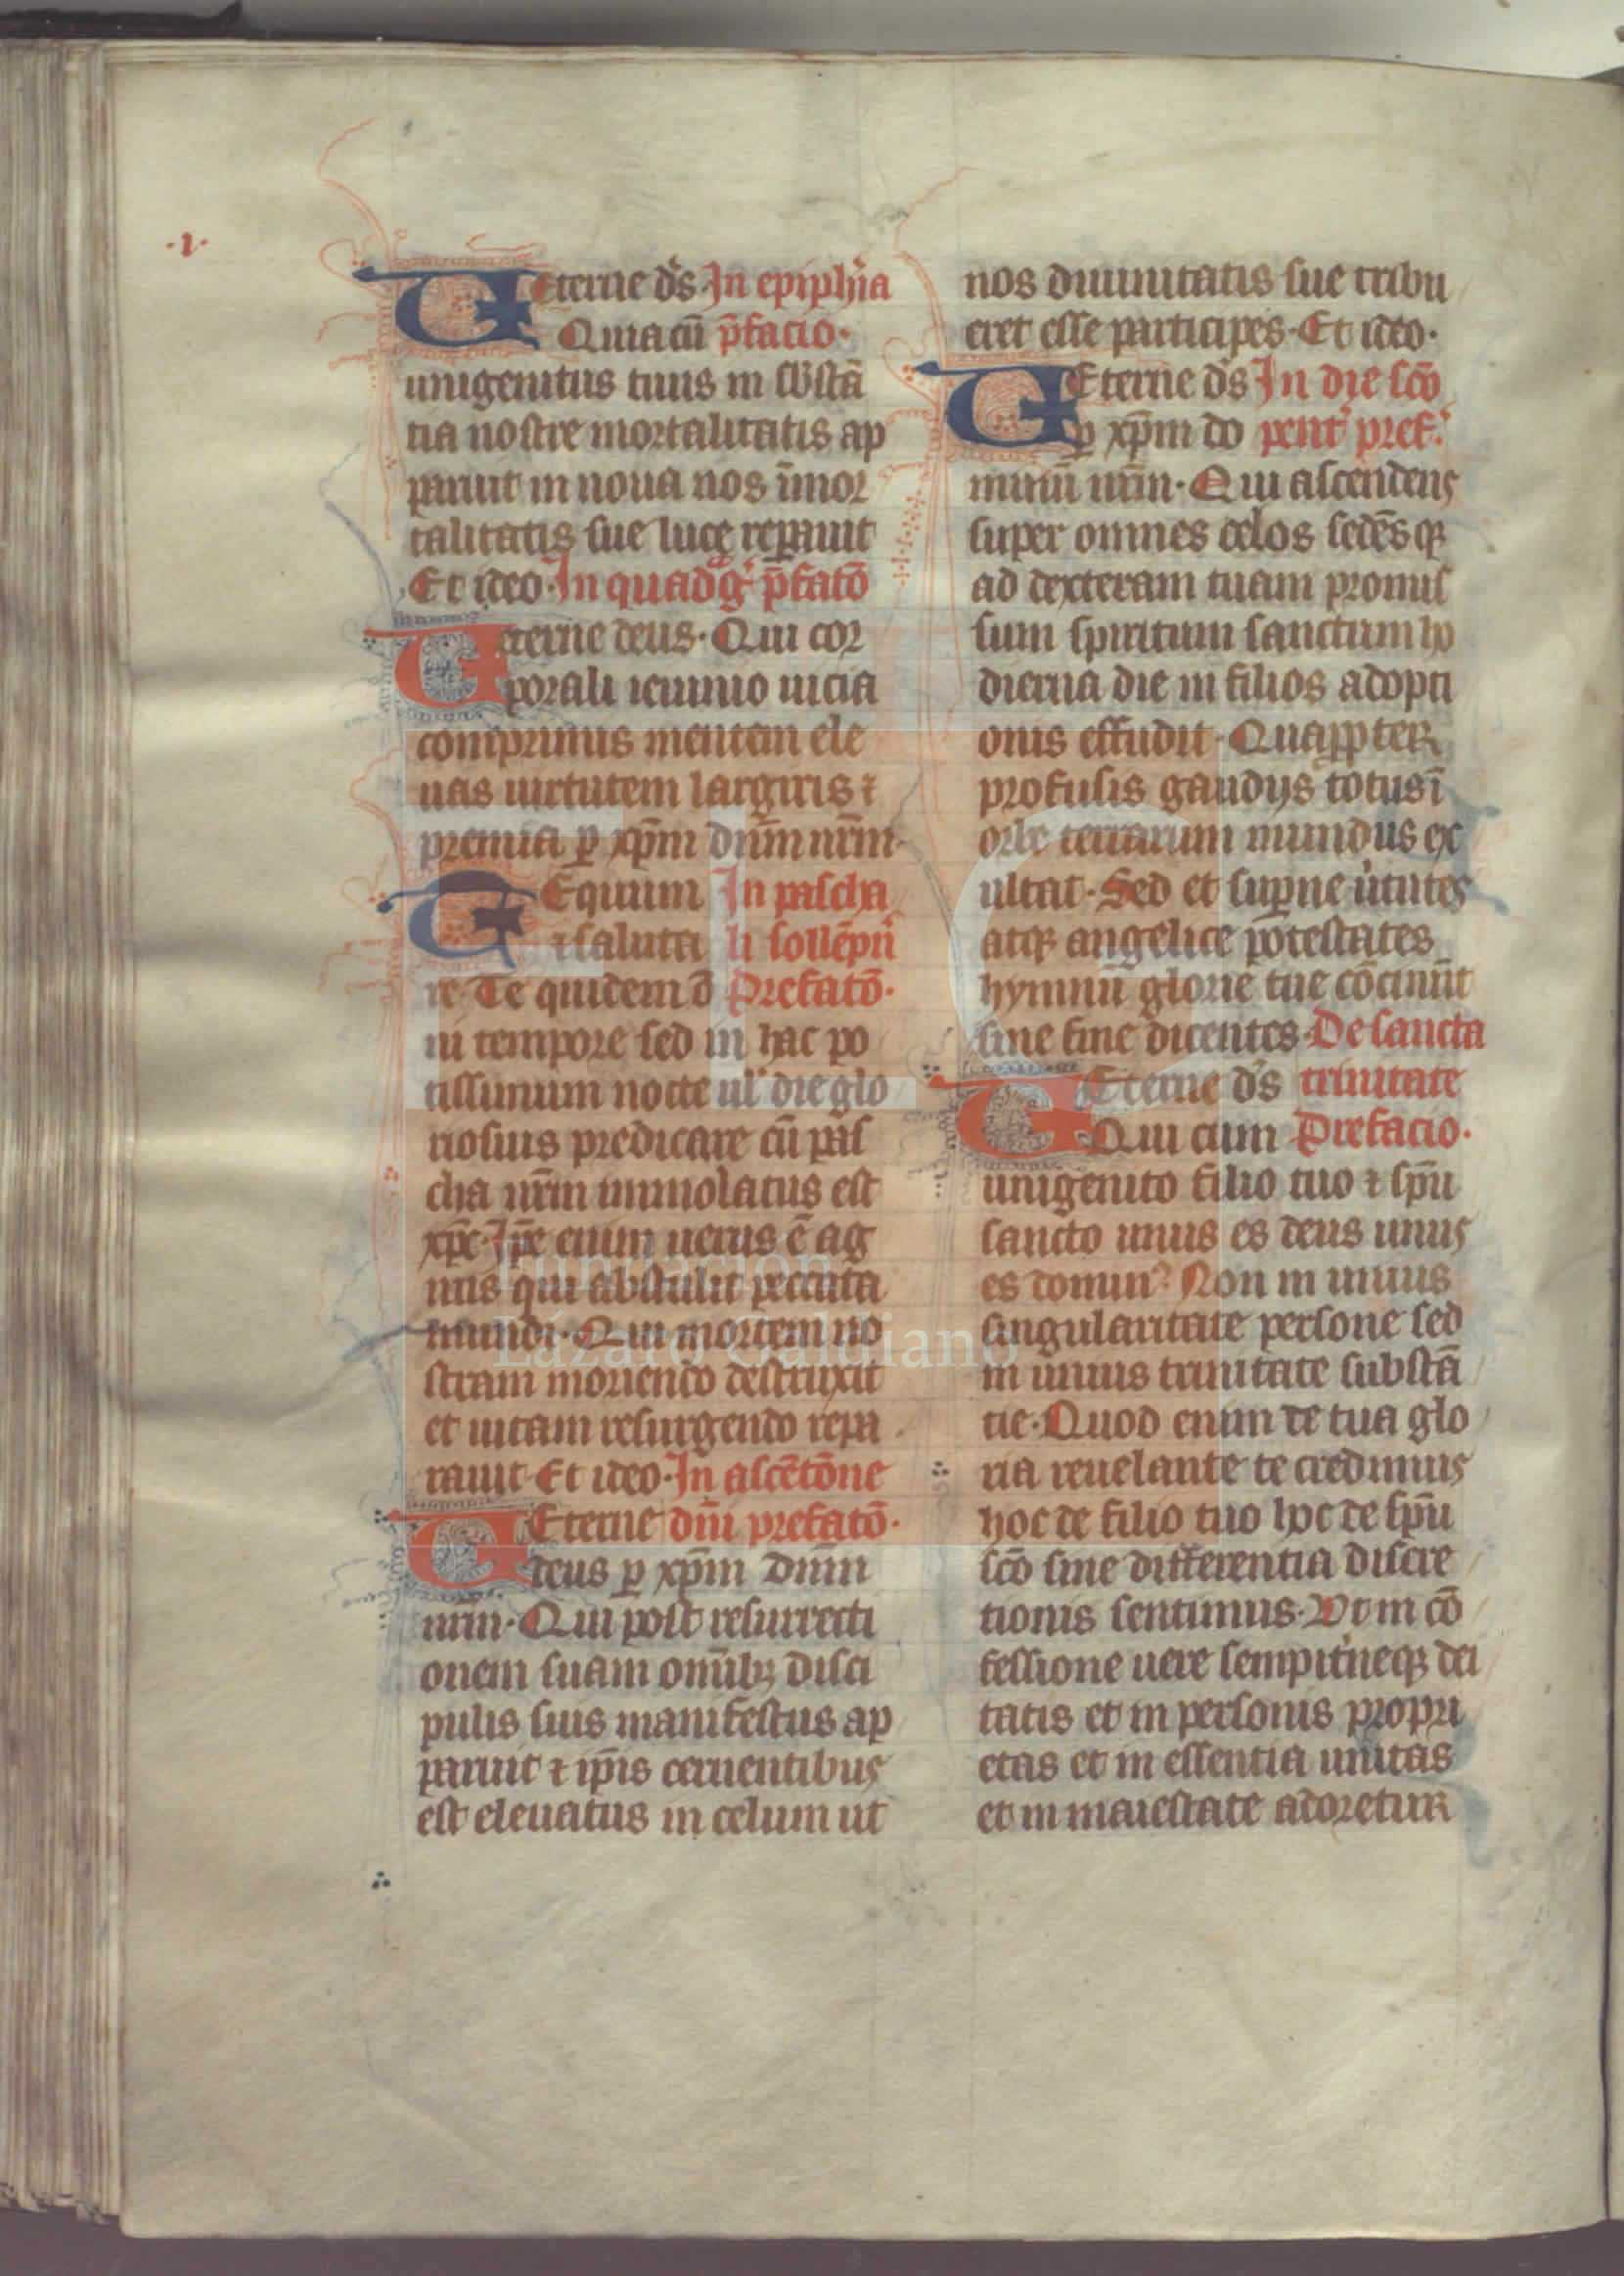 ·1·
Eterne ds̄. In epiph̄ia
Quia cū p̄facio.
unigenitus tuus in sb̄stā
tia nostre mortalitatis ap
paruit in noua nos īmor
talitatis sue luce reꝑauit
Et ideo. In quadḡ p̄fatō
Eterne deus. Qui cor
porali ieiunio uicia
comprimis mentem ele
uas uirtutem largiris ⁊
premia ꝑ xp̄m dn̄m nr̄m.
Equum In pascha
⁊ saluta li sollēpn̄
re. Te quidem ō Prefatō.
ni tempore sed in hac po
tissimum nocte ul̄ die glo
riosius predicare cū pas
cha nr̄m immolatus est
xp̄c. Ip̄e enim uerus ē ag
nus qui abstulit peccata
mundi. Qui mortem no
stram moriendo destruxit
et uitam resurgendo repa
rauit. Et ideo. In ascētōne
Eterne dn̄i prefatō.
deus ꝑ xp̄m dn̄m
nr̄m. Qui post resurrecti
onem suam omībꝫ disci
pulis suis manifestus ap
paruit ⁊ ip̄is cernentibus
est eleuatus in celum ut
nos diuinitatis sue tribu
eret esse participes. Et ideo.
Eterne ds̄ In die scō
ꝑ xp̄m do pent̄ pref.
minū nr̄m. Qui ascendens
super omnes celos sedēsqꝫ
ad dexteram tuam promis
sum spiritum sanctum ho
dierna die in filios adopti
onis effudit. Quaꝓpter
profusis gaudijs totus ī
orbe terrarum mundus ex
ultat. Sed et suꝑne uĩtutes
atqꝫ angelice potestates
hymnū glorie tue cōcinūt
sine fine dicentes. De sancta
Eterne ds̄ trinitate
Qui cum Prefacio.
unigenito filio tuo ⁊ sp̄u
sancto unus es deus unus
es dominꝰ. Non in unius
singularitate persone sed
in unius trinitate substā
tie. Quod enim de tua glo
ria reuelante te credimus
hoc de filio tuo hoc de sp̄u
scō sine differentia discre
tionis sentimus. Vt in cō
fessione uere sempit̄neqꝫ dei
tatis et in personis propri
etas et in essentia unitas
et in maiestate adoretur
FLG
Fundación
Lázaro Galdiano